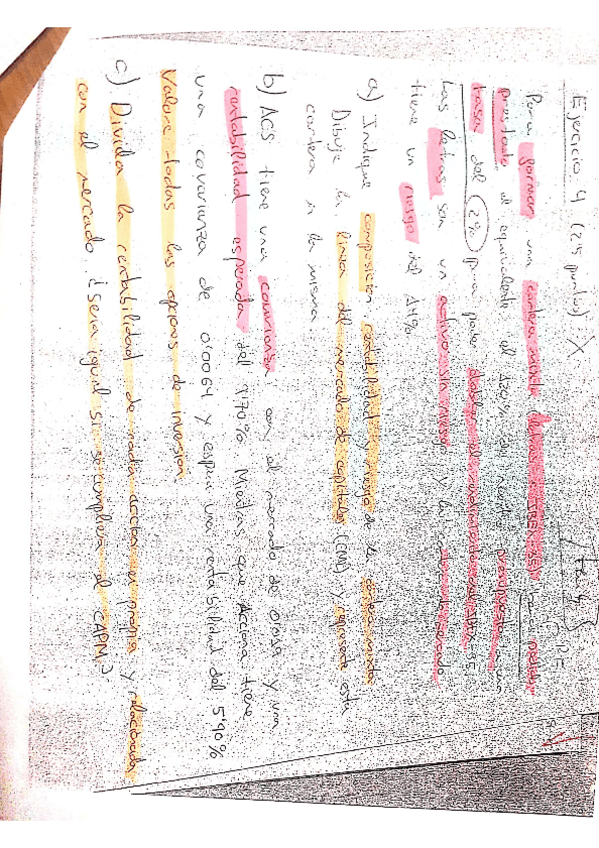 Ejercicio 4 (2'5 puntos): X
Para formar una cartera mixta letras IBEX 35 pedidos
prestado el equivalente al 120% de nuestro presupuesto a una
tasa del 2% para poder
Las letras son un activo sin riesgo y la cartera de mercado
tiene un riesgo del 14%
a) Indique composición, rentabilidad y riesgo de la cartera mixta
Dibuje la línea del mercado de capitales (CML) y represente esta
cartera en la misma.
b) ACS tiene una covarianza con el mercado de y una
rentabilidad esperada del Mientras que Acciona tiene
una covarianza de 0'0064 y espera una rentabilidad del 5'90%
Valore todas las opciones de inversión.
c) Divida la rentabilidad de cada acción en propia y relacionada
con el mercado. ¿Sería igual si se cumpliera el CAPM?